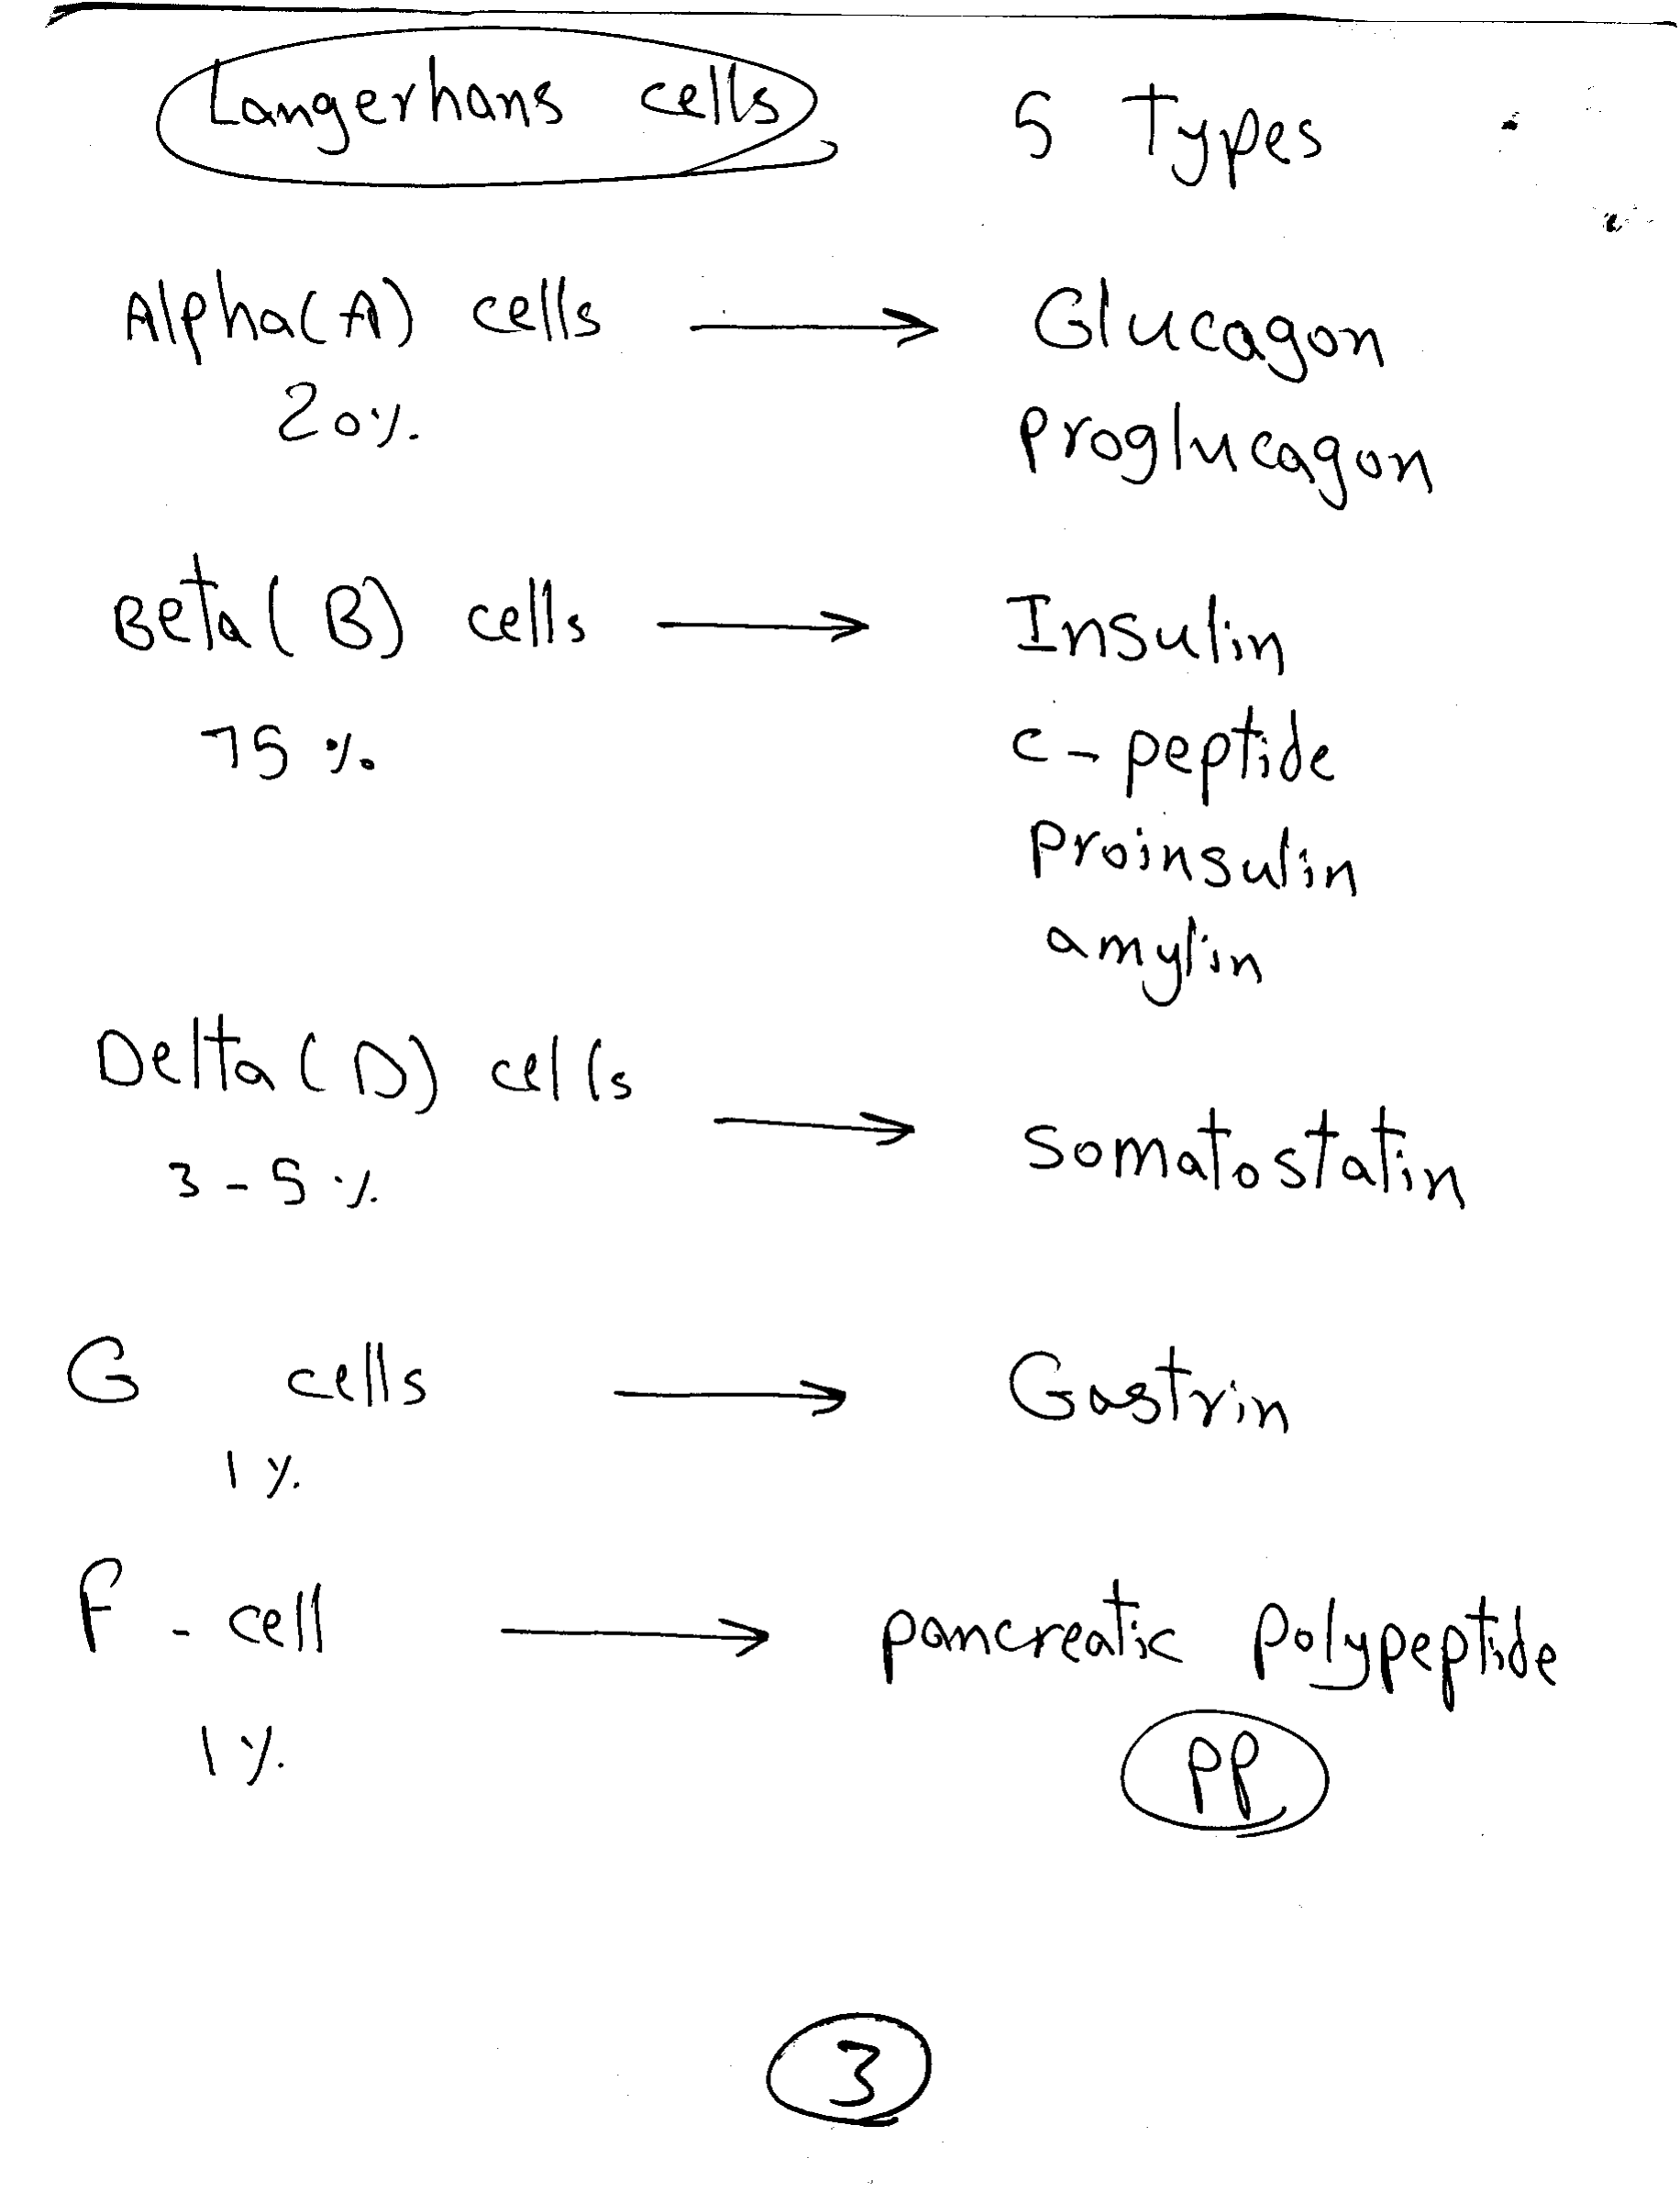 Langerhans cells 5 Types
Alpha(A) cells → Glucagon
20%. proglucagon
Beta(B) cells → Insulin
75 % c-peptide
Proinsulin
amylin
Delta(D) cells → somatostatin
3-5 %
G cells → Gastrin
1%
F-cell → pancreatic polypeptide
1% PP
3